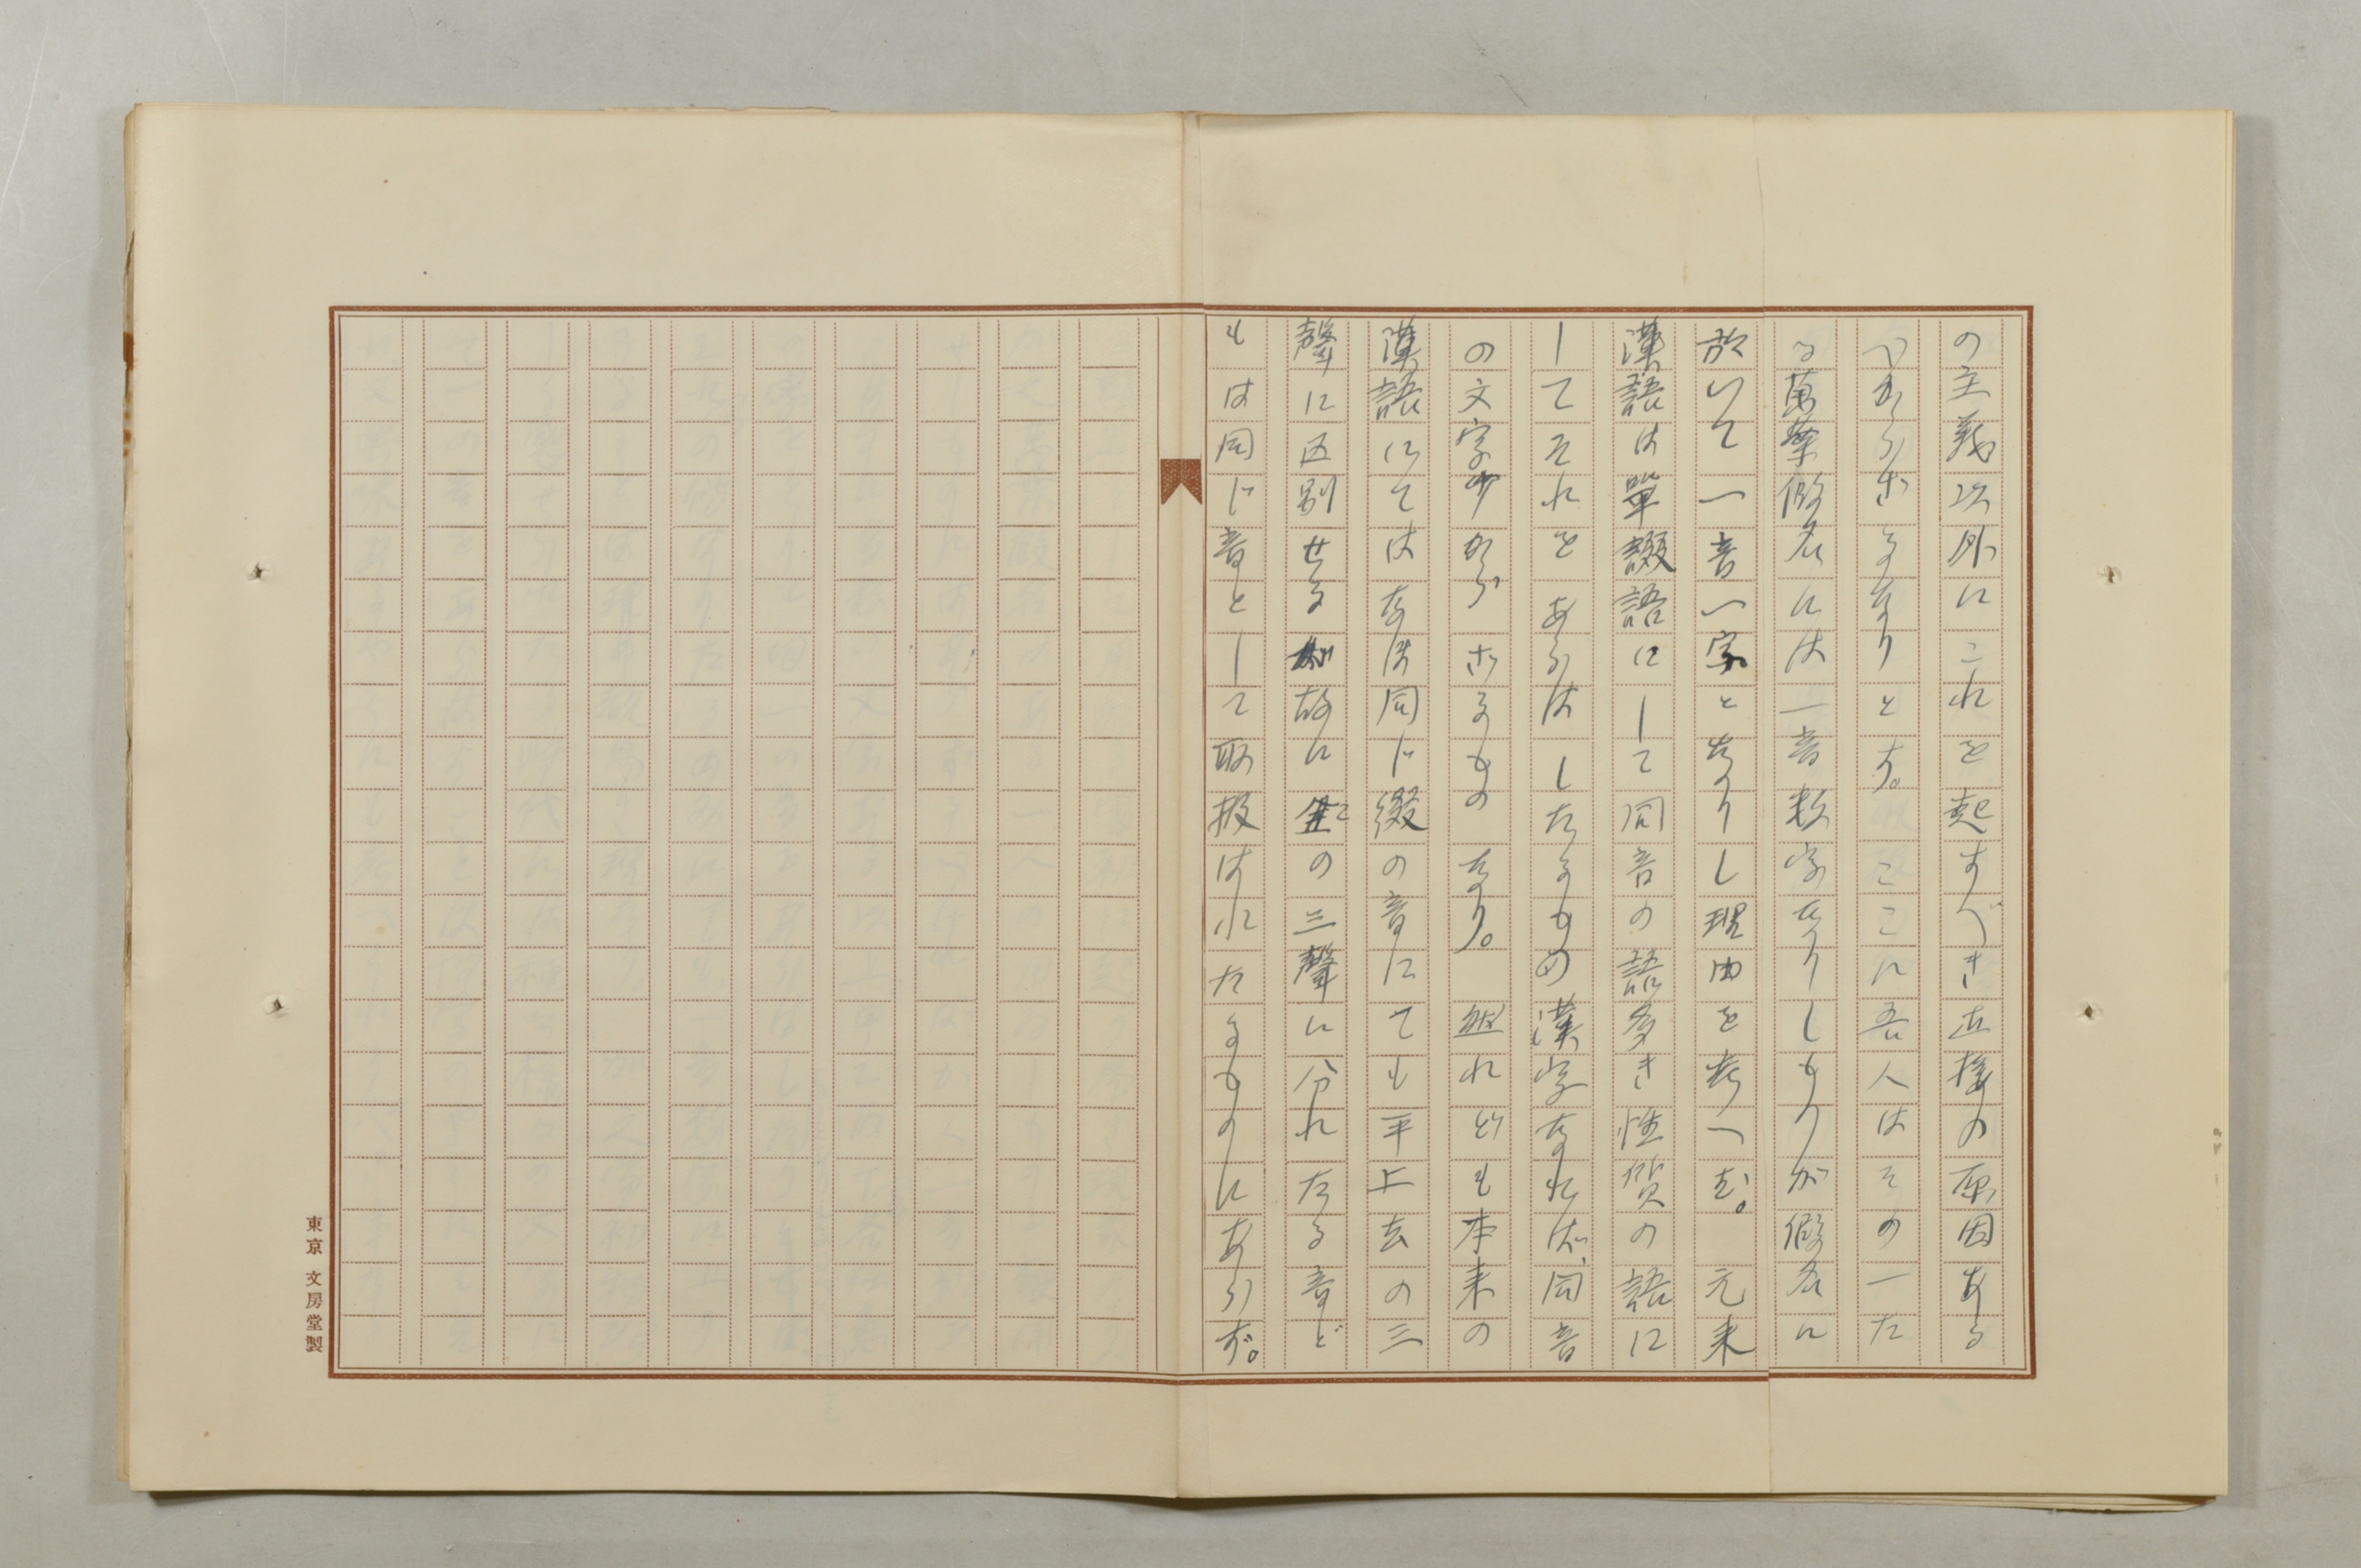 の主義以外にこれを起すべき直接の原因ある
べからざるなりとす。ここに吾人はその一た
る萬葉假名には一音数字なりしもりが假名に
於いて一音一字となりし理由を考へむ。元来
漢語は單綴語にして同音の語多き性質の語に
してそれをあらはしたるもの漢字なれば、同音
の文字少からざるものなり。然れども本来の
漢語にてはなほ同じ綴の音にても平上去の三
聲に区別せる故にの三聲に分れたる音ど
もは同じ音として取扱はれたるものにあらず。
東京 文房堂製